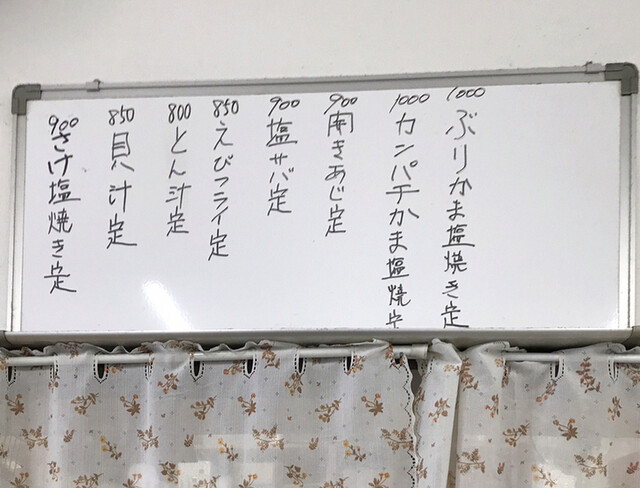 1000 ぶりかま塩焼き定
1000 カンパチかま塩焼定
900 開きあじ定
900 塩サバ定
850 えびフライ定
800 とん汁定
850 貝汁定
900 さけ塩焼き定